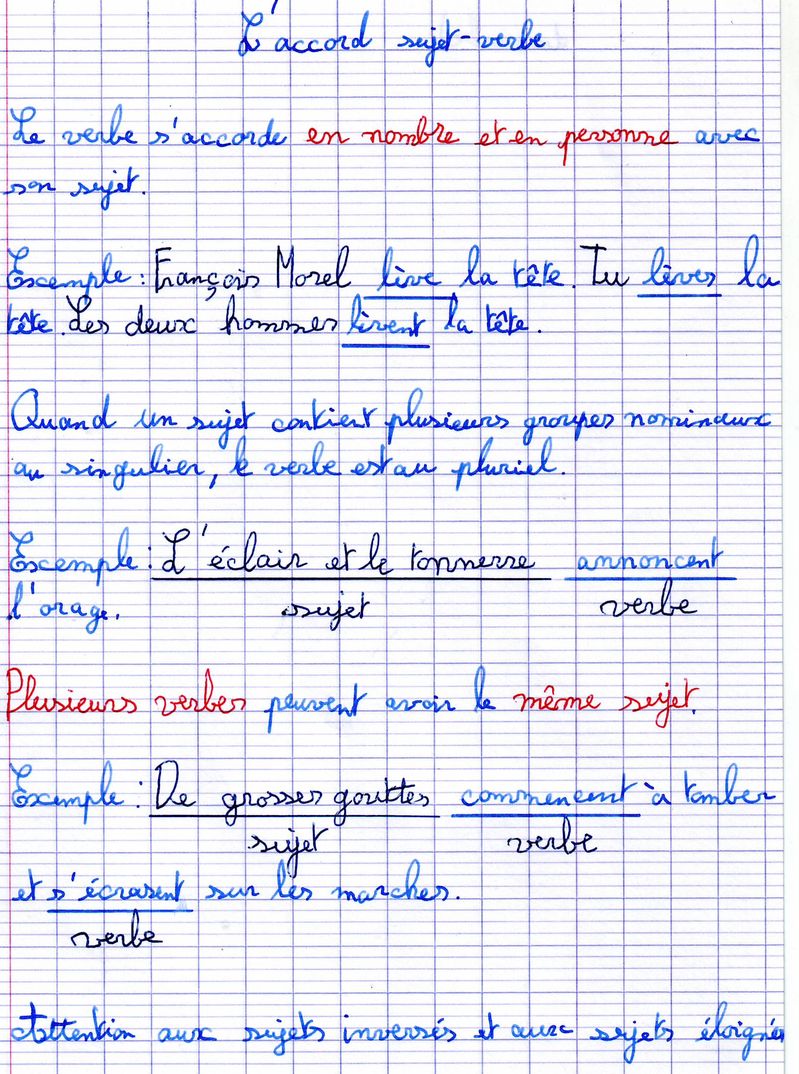 L'accord sujet-verbe
Le verbe s'accorde en nombre et en personne avec
son sujet.
Exemple : François Morel lève la tête. Tu lèves la
tête. Les deux hommes lèvent la tête.
Quand un sujet contient plusieurs groupes nominaux
au singulier, le verbe est au pluriel.
Exemple : L'éclair et le tonnerre annoncent
sujet verbe
l'orage.
Plusieurs verbes peuvent avoir le même sujet.
Exemple : De grosses gouttes commencent à tomber
sujet verbe
et s'écrasent sur les marches.
verbe
Attention aux sujets inversés et aux sujets éloignés